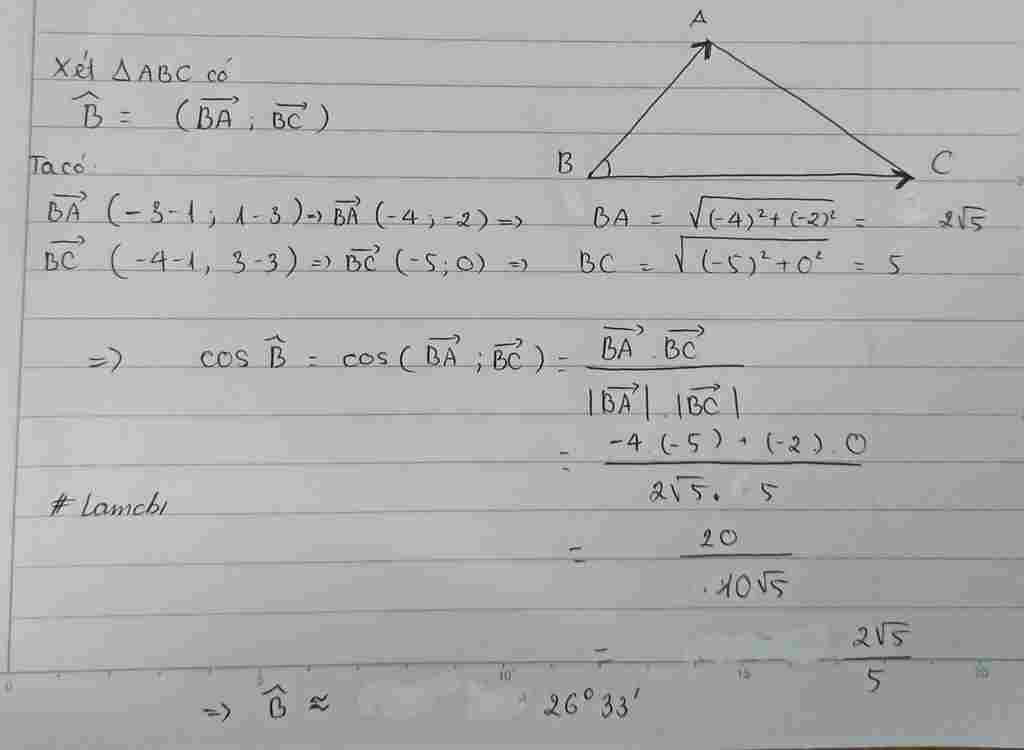 A
Xét △ABC có
B̂ = (BA→ ; BC→)
B C
Ta có:
BA→ (-3-1 ; 1-3) => BA→ (-4 ; -2) => BA = √((-4)² + (-2)²) = 2√5
BC→ (-4-1, 3-3) => BC→ (-5 ; 0) => BC = √((-5)² + 0²) = 5
=> cos B̂ = cos(BA→ ; BC→) = (BA→ . BC→) / (|BA→| . |BC→|)
= (-4 . (-5) + (-2) . 0) / (2√5 . 5)
# Lamcbi
= 20 / (10√5)
= 2√5 / 5
0 5 10 15 20
=> B̂ ≈ 26°33'